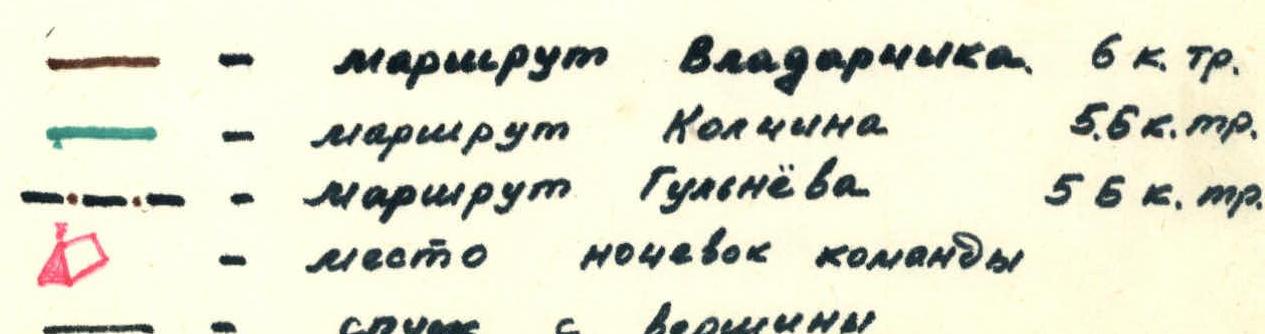 - маршрут Владарчика 6 к. тр.
- маршрут Колчина 5.Б к. тр.
- маршрут Гульнёва 5 Б к. тр.
- место ночевок команды
- спуск с вершины